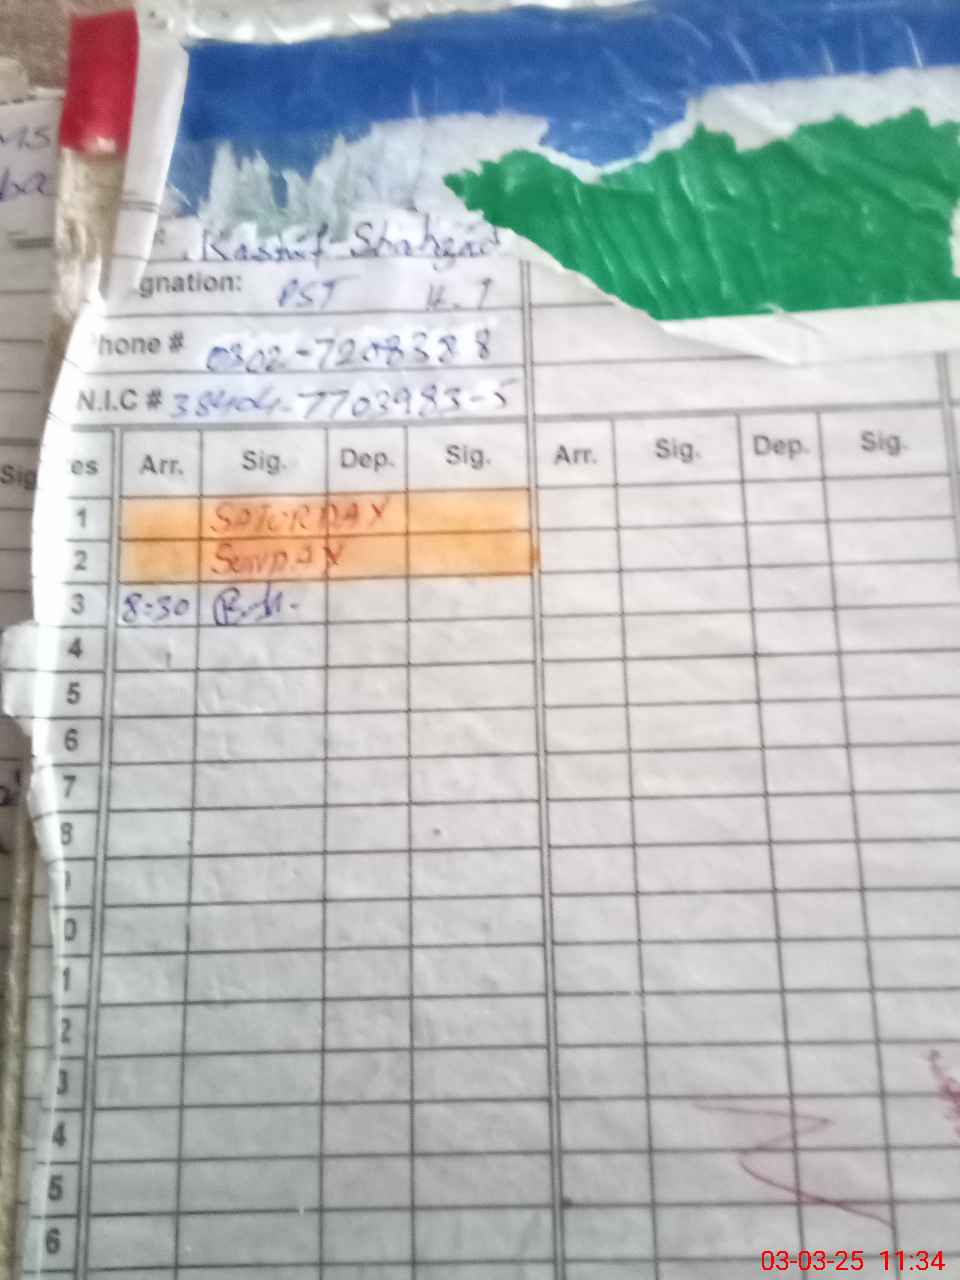 MS
Kashif Shahzad
gnation: PST
hone # 0302-7208388
N.I.C # 38404-7703983-5
Sig
es Arr. Sig. Dep. Sig. Arr. Sig. Dep. Sig.
1 SATURDAY
2 SUNDAY
3 8:30
4
5
6
7
8
0
1
2
3
4
5
6
03-03-25 11:34